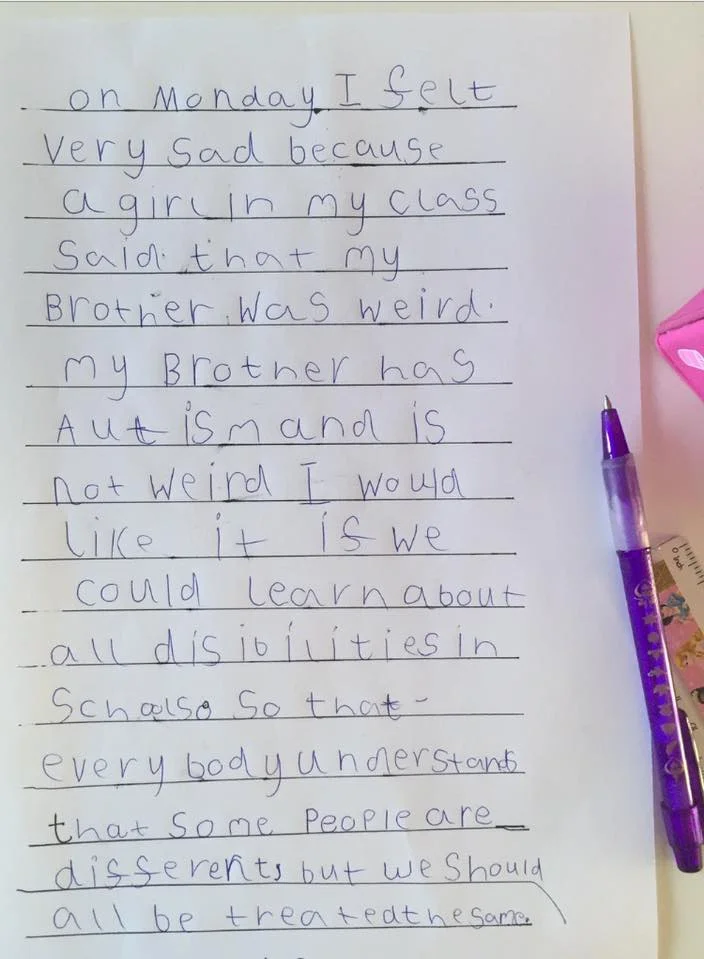 on Monday I felt
very sad because
a girl in my class
Said that my
Brother was weird.
my Brother has
Autism and is
not weird I would
like it if we
could learn about
all disibilities in
so that
everybody understands
that some people are
but we should
all be treated the same.
0 inch